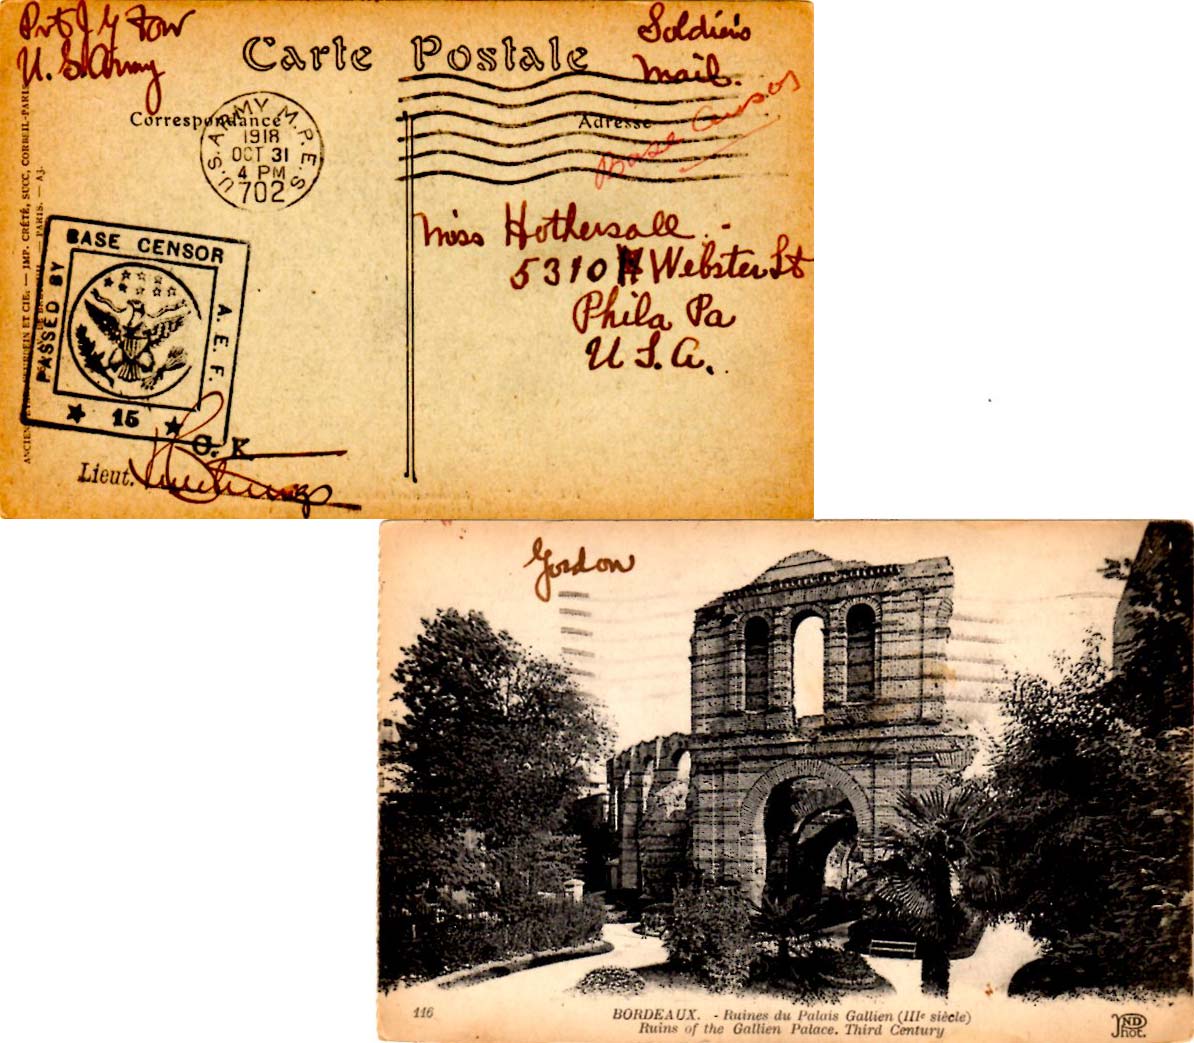 Pvt J. G. Fow
U. S. Army
Carte Postale
Soldier's
Mail.
Correspondance
Adresse
Base Censor
U.S. ARMY M.P.E.S.
1918
OCT 31
4 PM
702
Miss Hothersall
5310 Webster St
Phila Pa
U. S. A.
BASE CENSOR
PASSED BY
A. E. F.
15
O. K.
Lieut.
IMP. CRÉTÉ, SUCC, CORBEIL-PARIS
PARIS. — A3.
Gordon
116
BORDEAUX. - Ruines du Palais Gallien (IIIe siècle)
Ruins of the Gallien Palace. Third Century
ND
Phot.